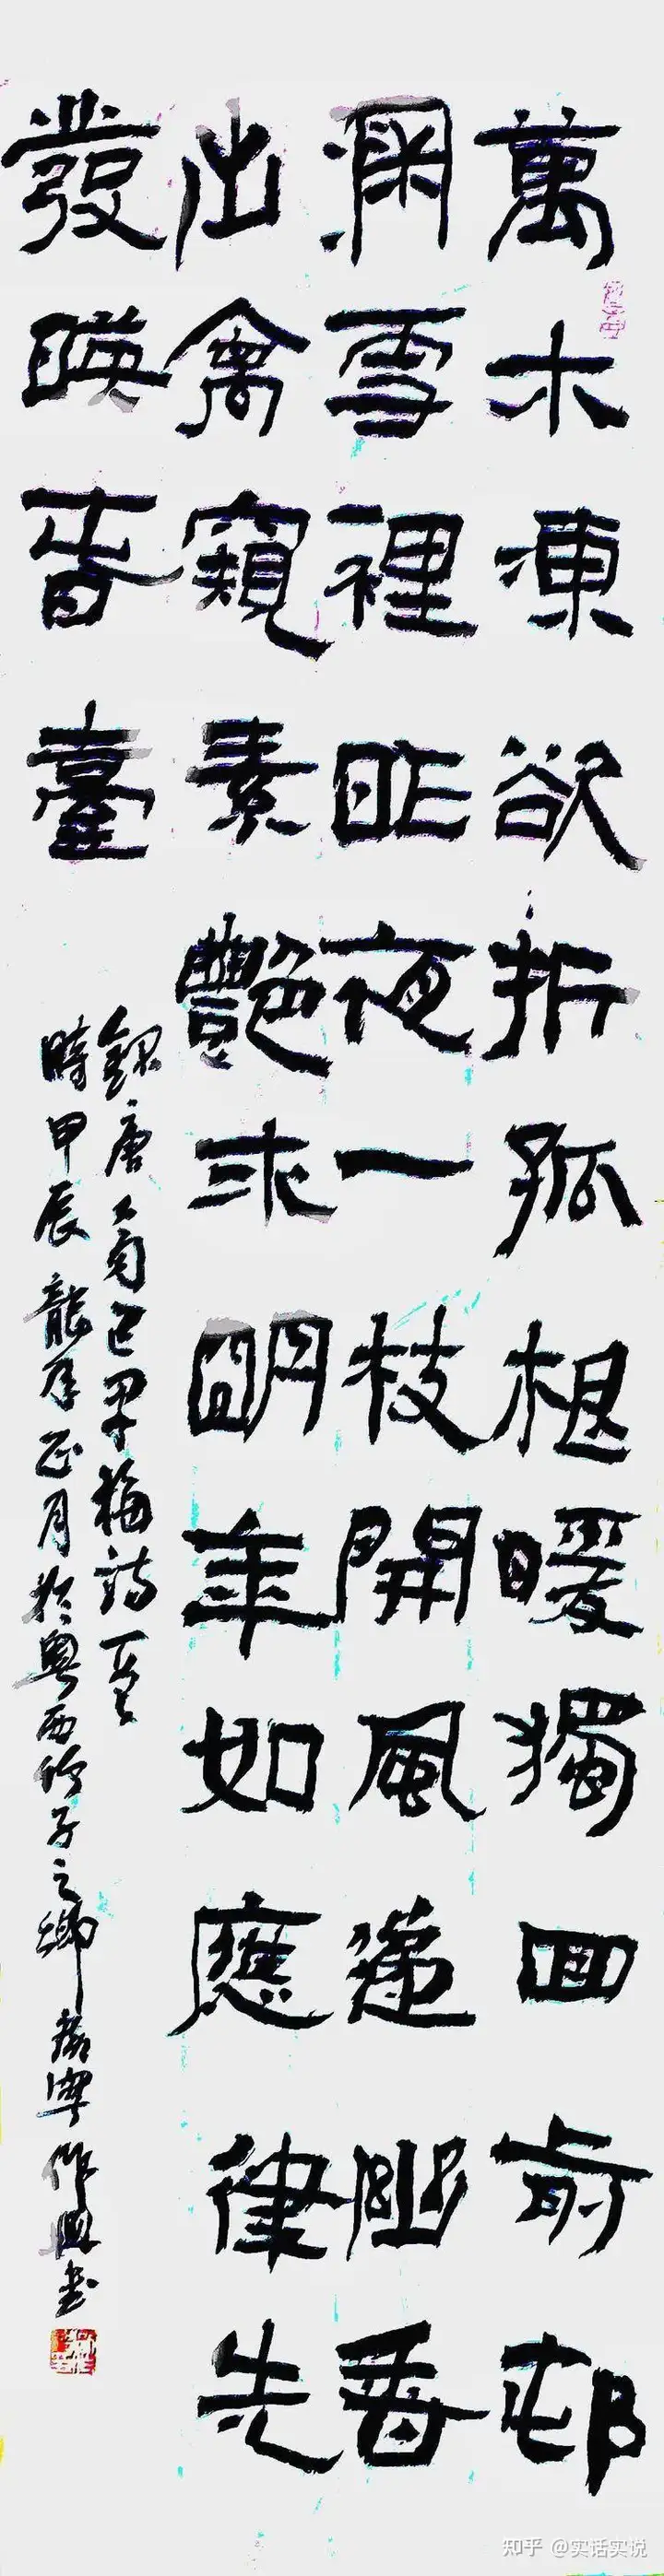 萬木凍欲折孤根暖獨回前邨
深雪裡昨夜一枝開風遞幽香
出禽窺素豔來明年如應律先
發暎春臺
錄唐人齊己早梅詩一首
時甲辰龍年正月於粵西竹子之鄉
知乎 @实话实说